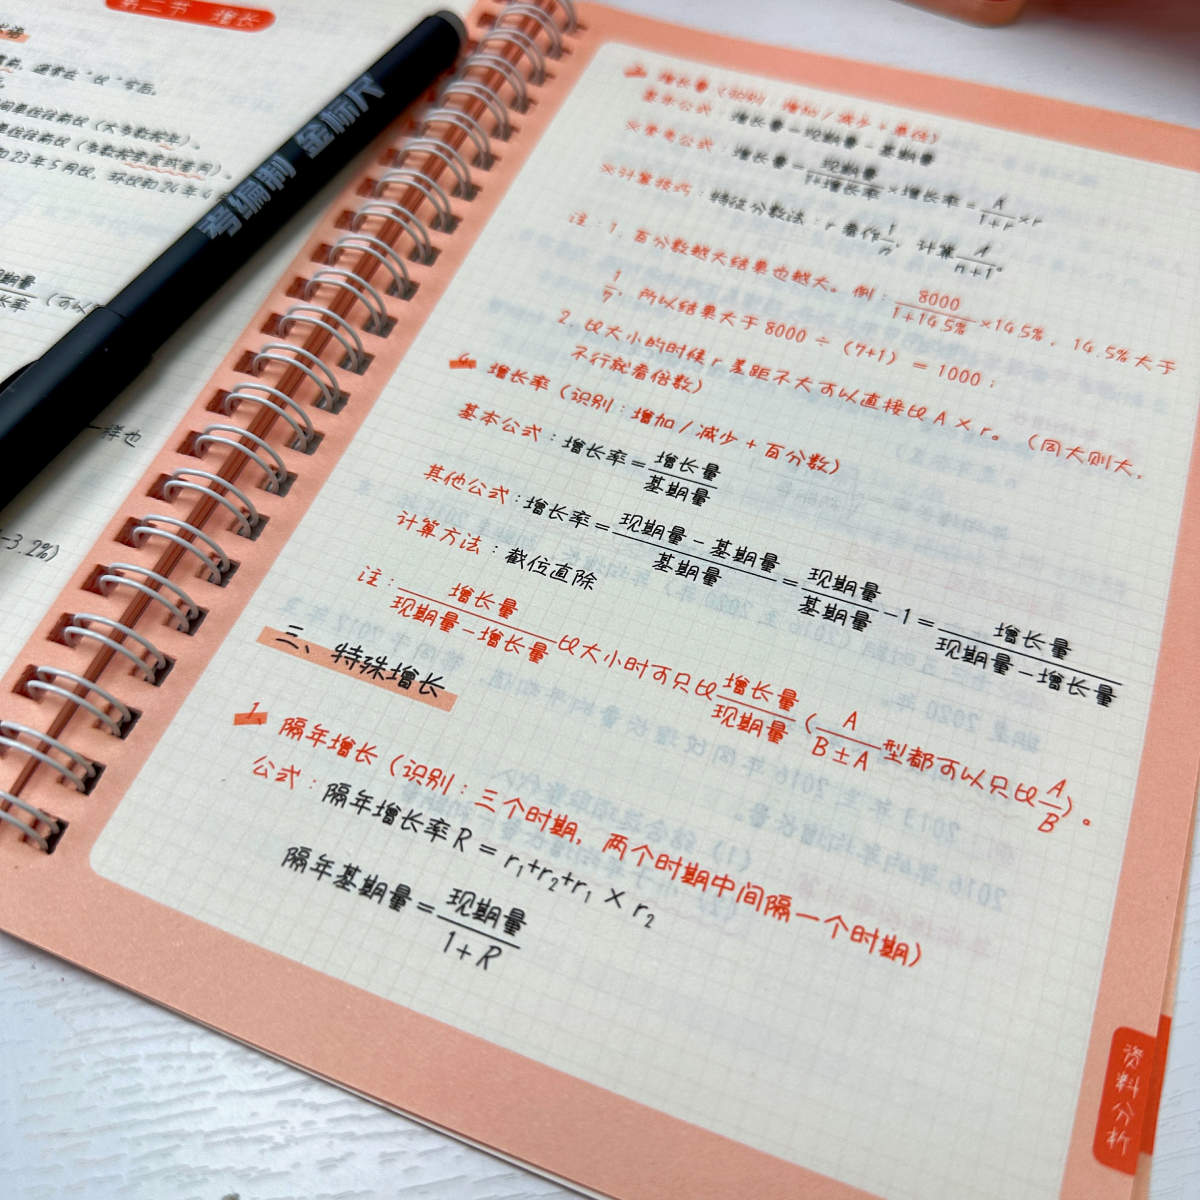 第二节 增长
样也
-3.2%)
考编制 金标尺
3. 增长量（识别：增加/减少+单位）
基本公式：增长量=现期量-基期量
※常考公式：增长量=现期量/1+增长率×增长率=A/1+r×r
※计算技巧：特征分数法：r看作1/n，计算A/n+1。
注：1. 百分数越大结果也越大。例：8000/1+14.5%×14.5%，14.5%大于
1/7，所以结果大于8000÷（7+1）=1000；
2. 比大小的时候r差距不大可以直接比A×r。（同大则大，
不行就看倍数）
4. 增长率（识别：增加/减少+百分数）
基本公式：增长率=增长量/基期量
其他公式：增长率=现期量-基期量/基期量=现期量/基期量-1=增长量/现期量-增长量
计算方法：截位直除
注：增长量/现期量-增长量比大小时可只比增长量/现期量（A/B±A型都可以只比A/B）。
三、特殊增长
1. 隔年增长（识别：三个时期，两个时期中间隔一个时期）
公式：隔年增长率R=r₁+r₂+r₁×r₂
隔年基期量=现期量/1+R
资料分析